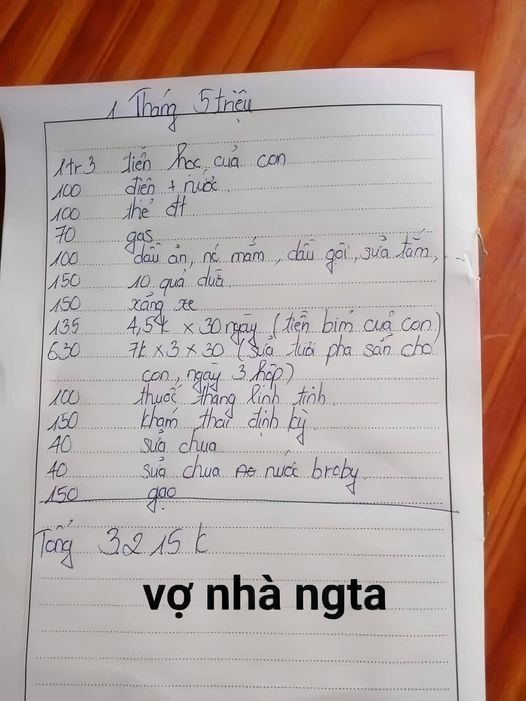 1 Tháng 5 triệu
1tr3 tiền học của con
100 điện + nước
100 thẻ đt
70 gas
100 dầu ăn, nc mắm, dầu gội, sữa tắm,
150 10 quả dừa
150 xăng xe
135 4,5k x 30 ngày (tiền bỉm của con)
630 7k x 3 x 30 (sữa tươi pha sẵn cho
con, ngày 3 hộp)
100 thuốc tháng linh tinh
150 khám thai định kỳ
40 sữa chua
40 sữa chua nước broby
150 gạo
Tổng 3215k
vợ nhà ngta